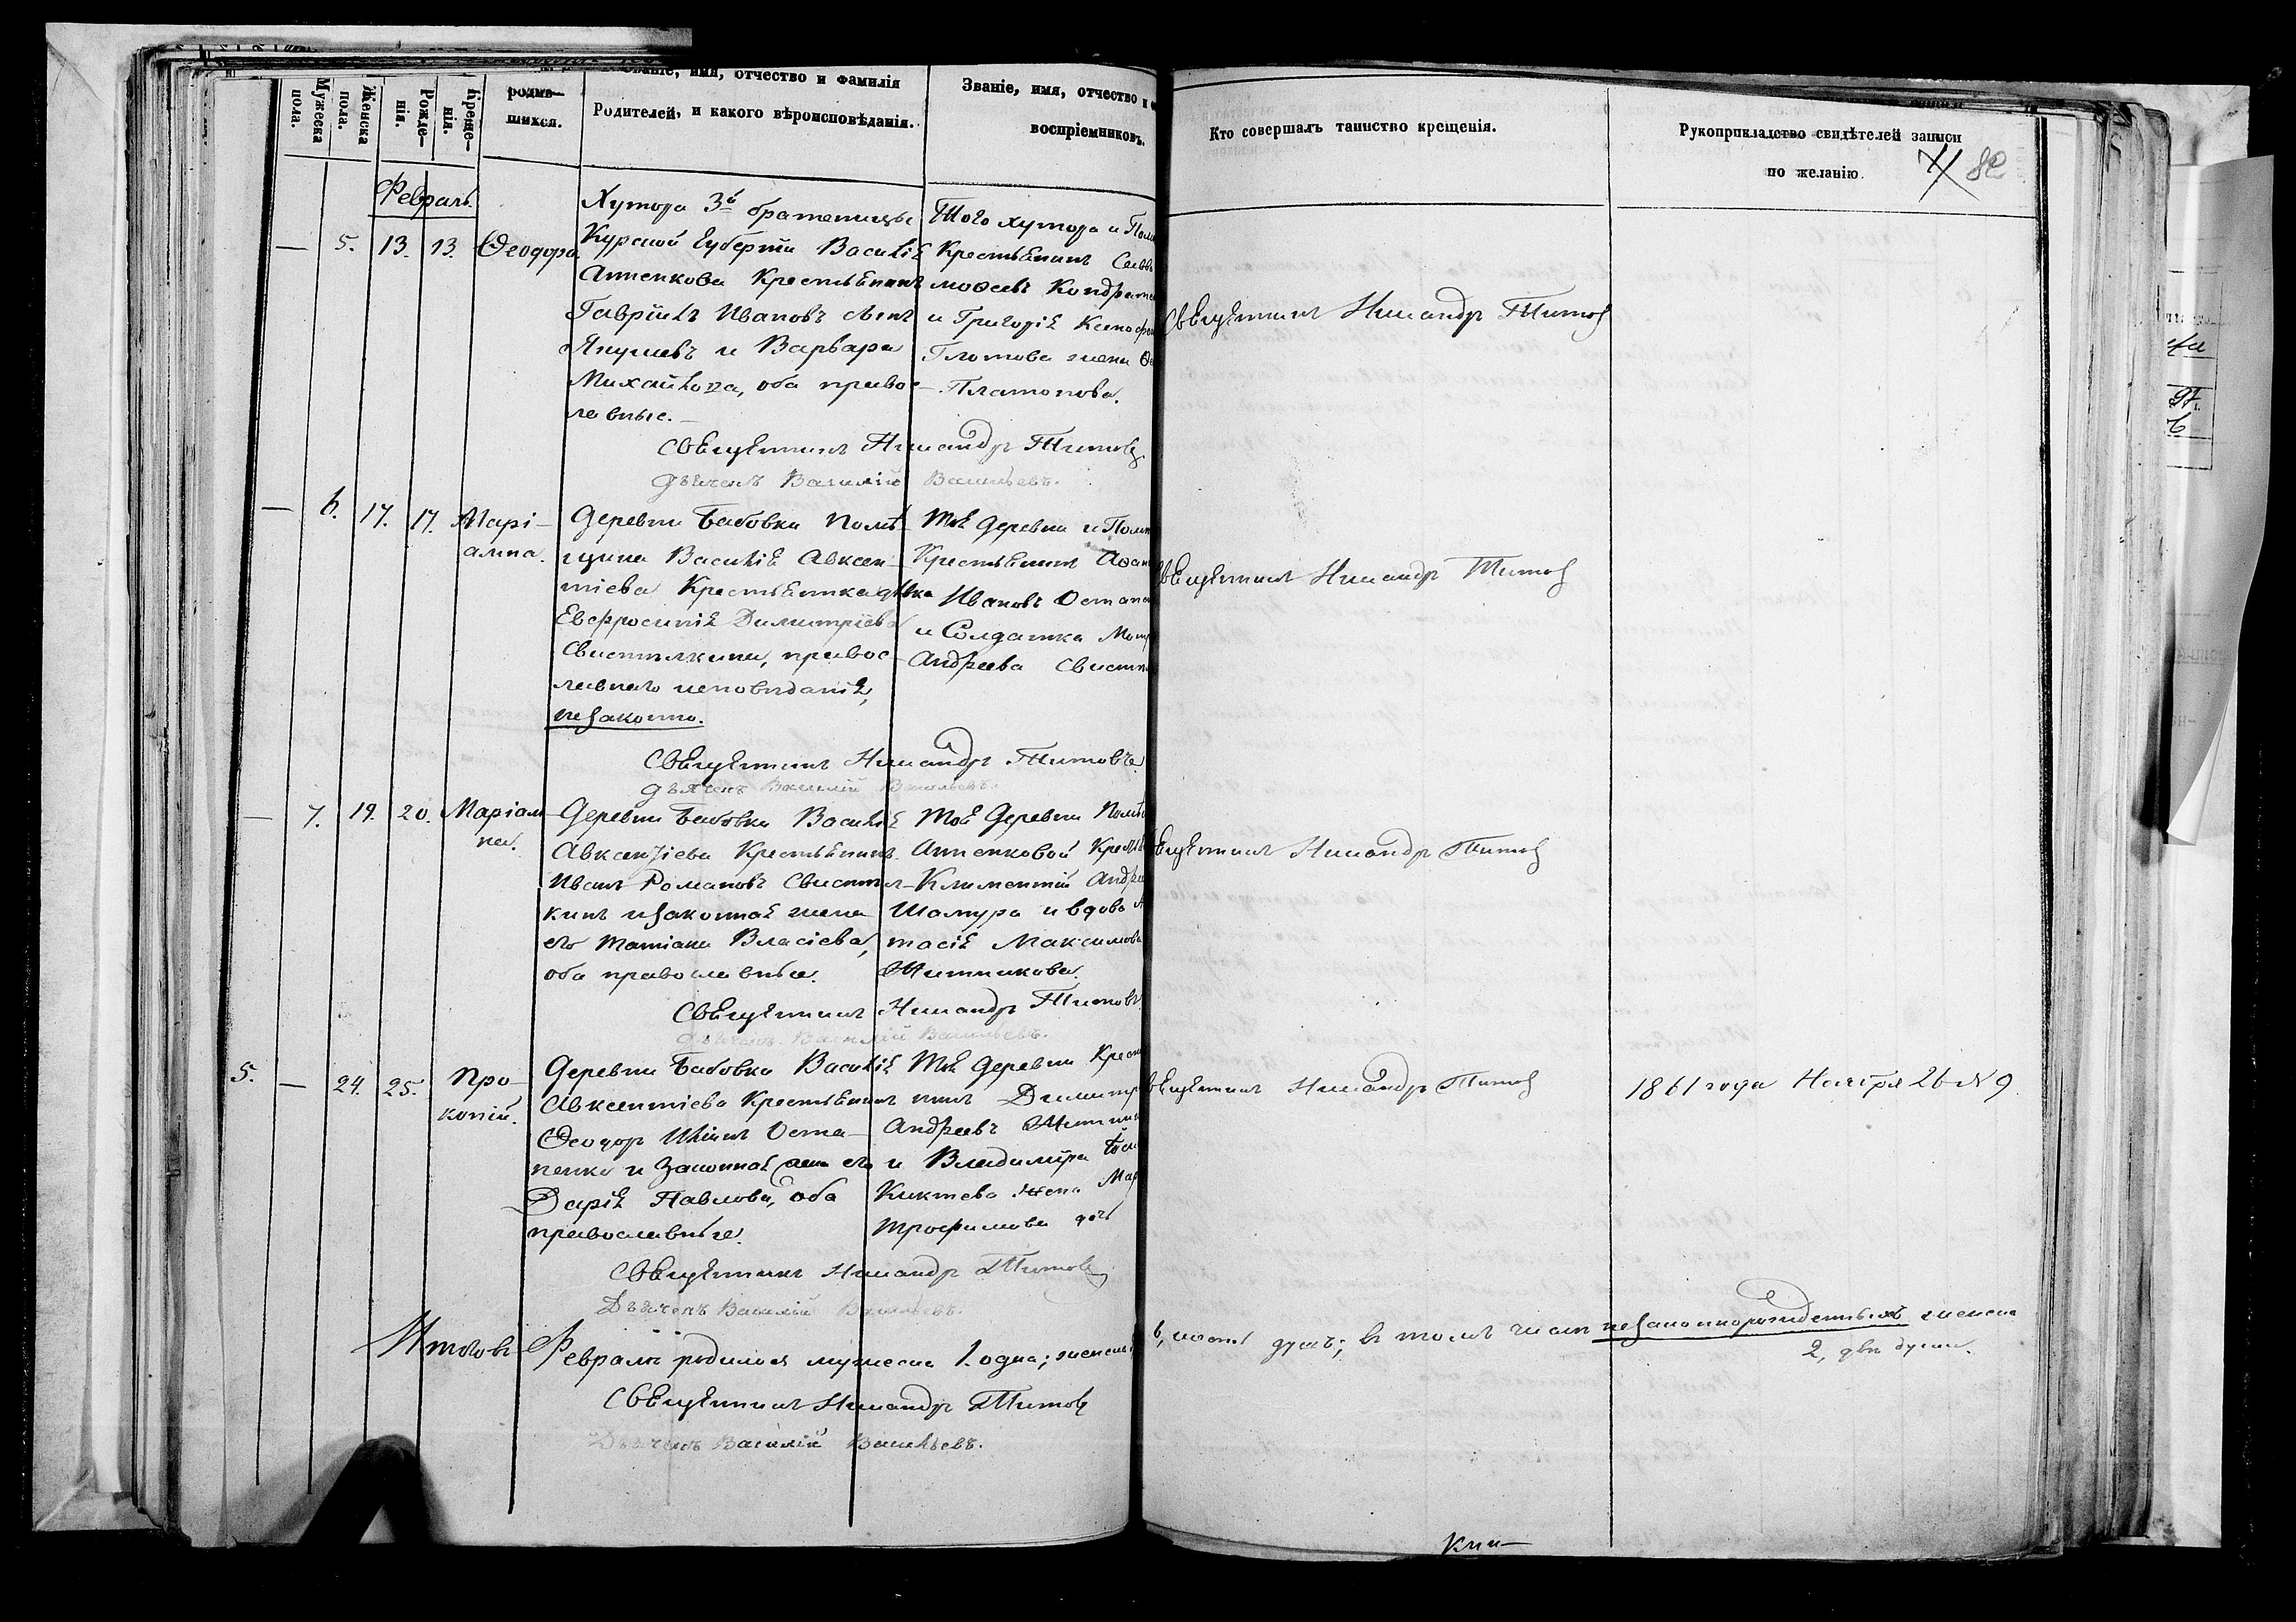 Мужеска пола.
Женска пола.
Рожде-нія.
Креще-нія.
родив-
шихся.
Званіе, имя, отчество и фамилія
Родителей, и какого вѣроисповѣданія.
Званіе, имя, отчество и
воспріемниковъ.
Кто совершалъ таинство крещенія.
Рукоприкладство свидѣтелей записи
по желанію.
82
Февраль.
— 5. 13. 13. Ѳеодора
Хутора 3й
Курской Губерніи Василія
Анненкова Крестьянинъ
Гавріилъ Ивановъ сынъ
и Варвара
Михайлова, оба правос-
лавные.
Того хутора и
Крестьянинъ
и Григорія
жена
Платонова.
Священникъ Никандръ Титовъ
Священникъ Никандръ Титовъ
Дьячекъ Василій Васильевъ.
— 6. 17. 17. Марі-
амна.
Деревни Бабовки помѣ-
щика Василія Авксен-
тіева Крестьянка дѣвка
Евфросинія Димитріева
Свистилкина, правос-
лавнаго исповѣданія,
незаконно.
Той деревни и
Крестьянинъ
Ивановъ
и Солдатка
Андреева
Священникъ Никандръ Титовъ
Священникъ Никандръ Титовъ
Дьячекъ Василій Васильевъ.
— 7. 19. 20. Маріам-
на.
Деревни Бабовки Василія
Авксентіева Крестьянинъ
Иванъ Романовъ Свистил-
кинъ и законная жена
его Татіана Власіева,
оба православные.
Той деревни
Анненковой
Климентій
Шамура и вдова
тасія Максимова
Житникова.
Священникъ Никандръ Титовъ
Священникъ Никандръ Титовъ
Дьячекъ Василій Васильевъ.
5. — 24. 25. Про-
копій.
Деревни Бабовки Василія
Авксентіева Крестьянинъ
Ѳеодоръ Ильинъ Оста-
пенко и законная жена его
Дарія Павлова, оба
православные.
Той деревни
нинъ
Андреевъ
и Владиміра
Киктева жена
Трофимова дочь
Священникъ Никандръ Титовъ
1861 года Ноября 26 № 9.
Священникъ Никандръ Титовъ
Дьячекъ Василій Васильевъ.
Итого въ Февралѣ родилося мужеска 1. одна; женска 6, шесть душъ; въ томъ числѣ незаконнорожденныхъ женска
2, двѣ души.
Священникъ Никандръ Титовъ
Дьячекъ Василій Васильевъ.
Кни-